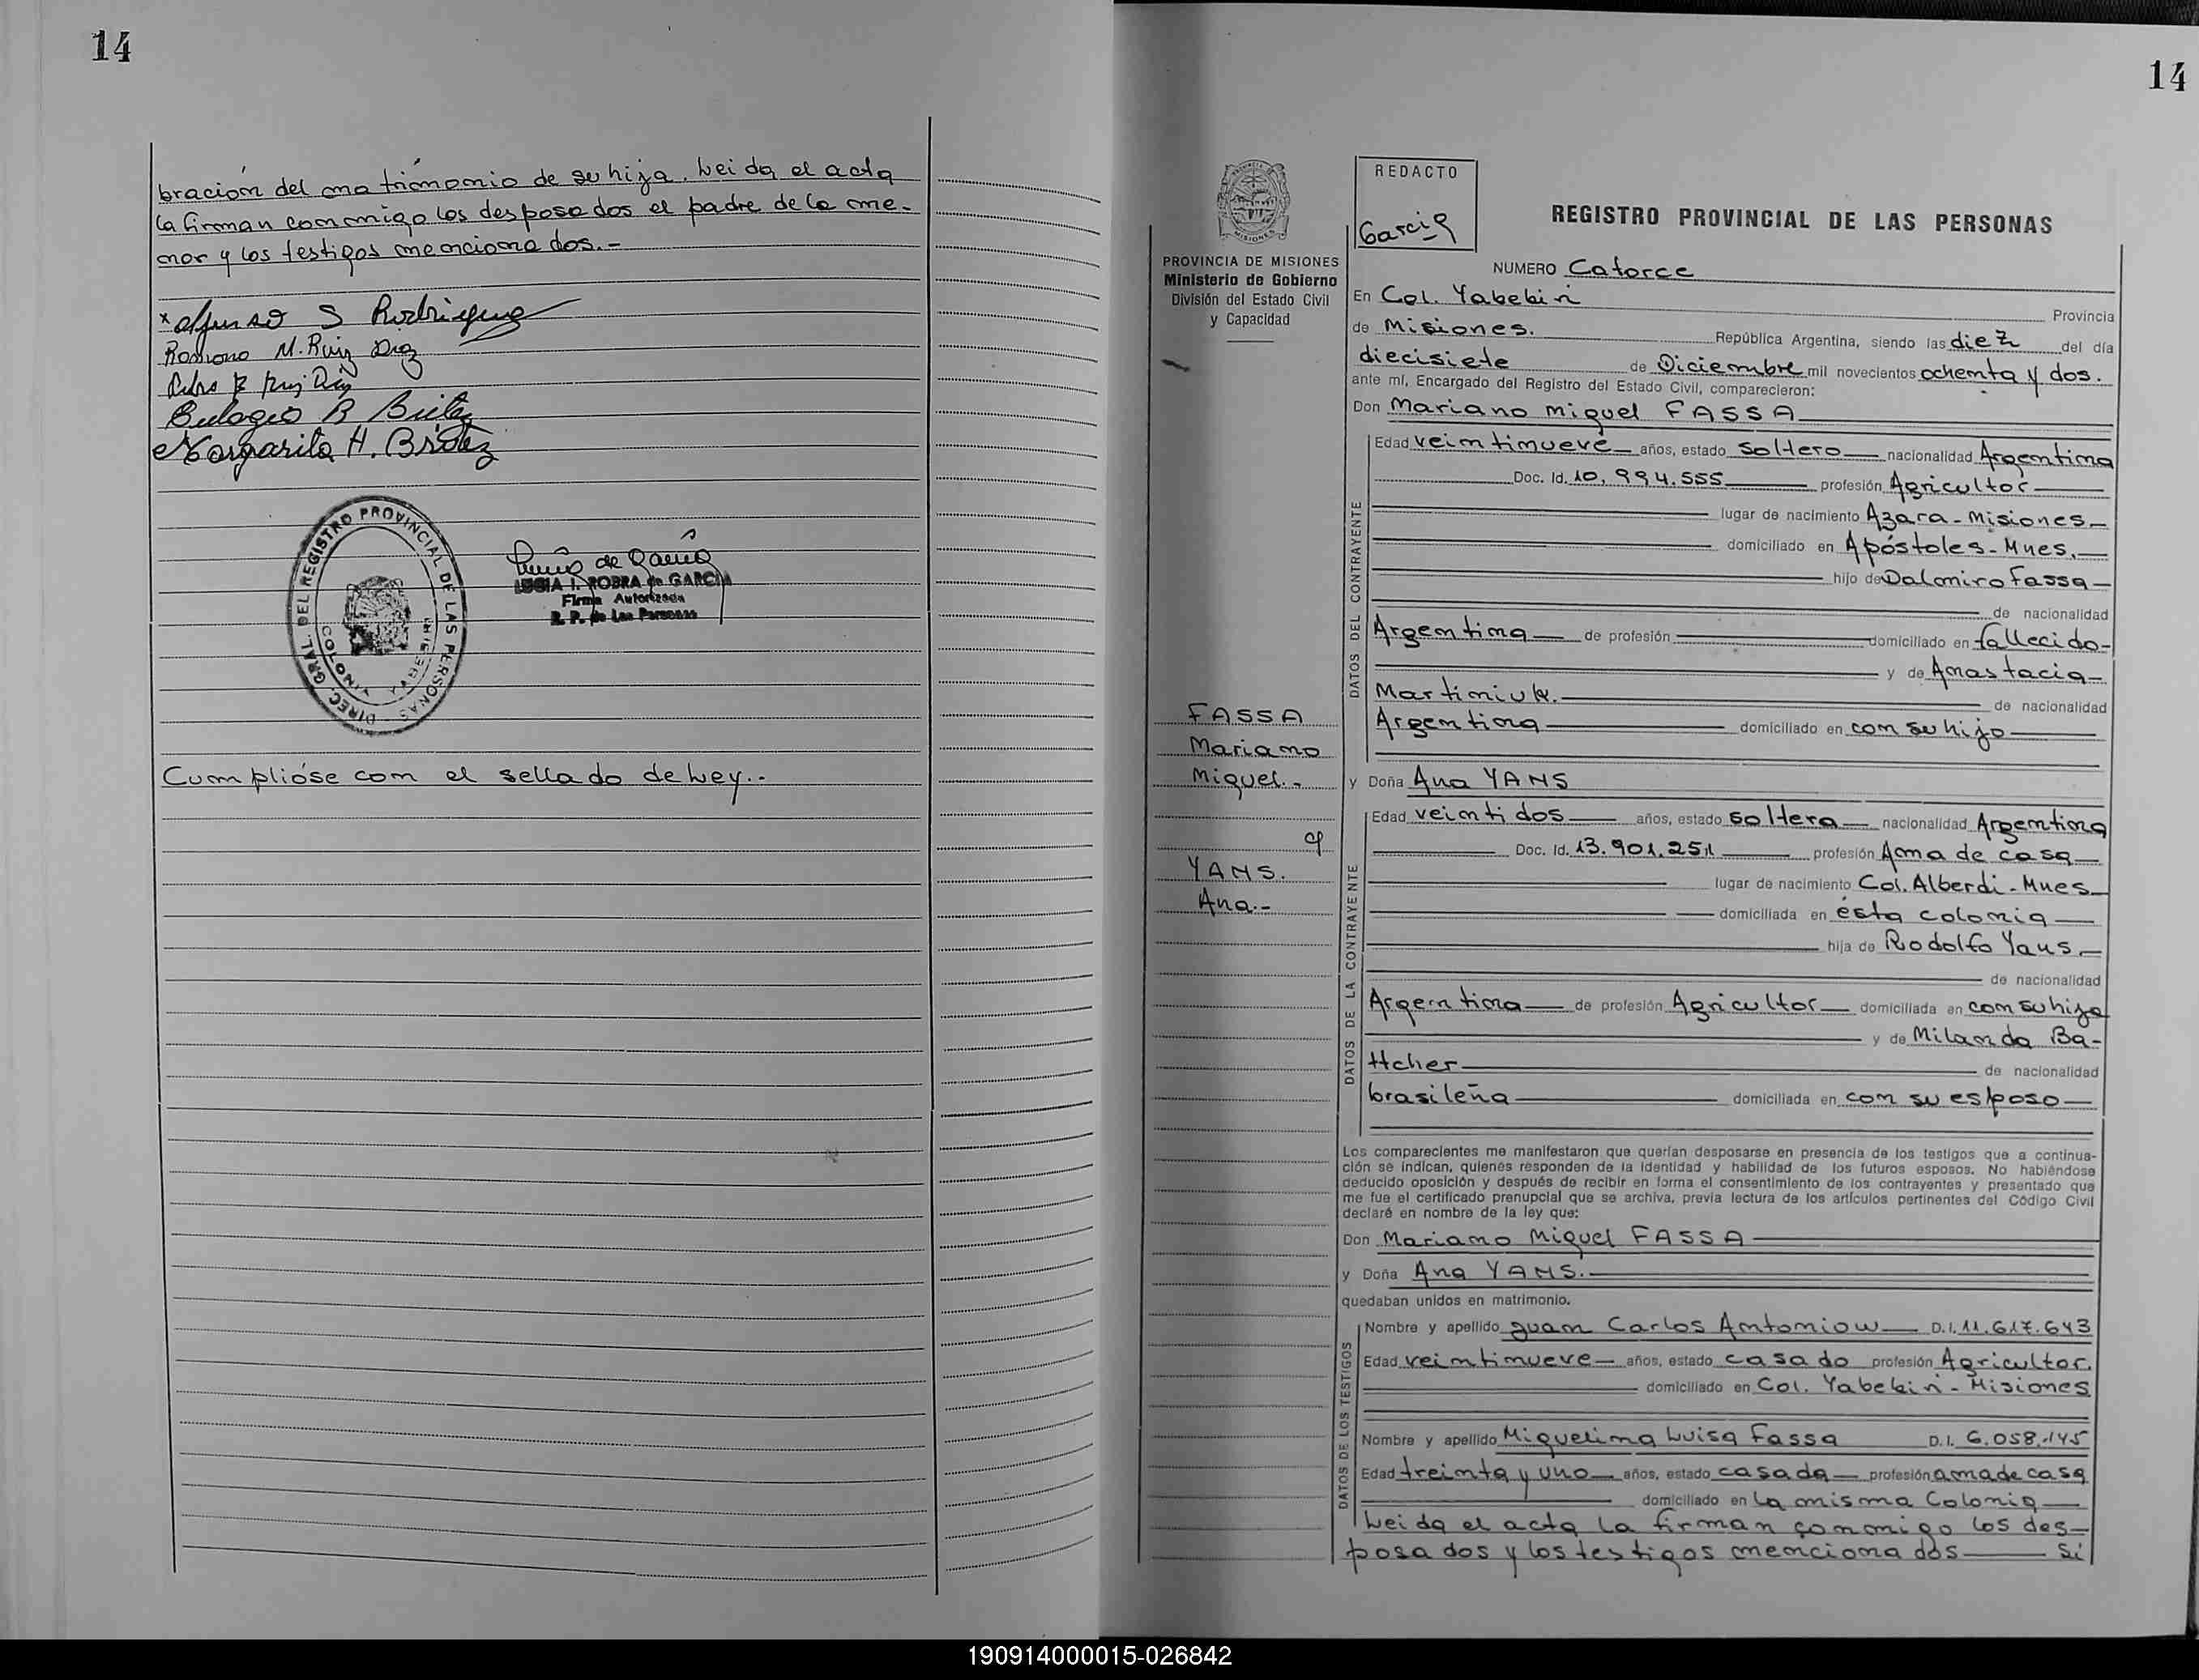 14
bración del matrimonio de su hija. Leida el acta
la firman conmigo los desposados el padre de la me-
nor y los testigos mencionados.-
x Alfonso S Rodriguez
Romono M. Ruiz Diaz
Ruiz Diaz
Eulogio B Britez
Margarita H. Britez
DIREC. GRAL. DEL REGISTRO PROVINCIAL DE LAS PERSONAS
COLONIA YABEBIRI
de García
LUCIA I. ROBRA de GARCIA
Firma Autorizada
R. P. de Las Personas
Cumplióse con el sellado de Ley.-
14
PROVINCIA DE MISIONES
Ministerio de Gobierno
División del Estado Civil
y Capacidad
FASSA
Mariano
Miguel.-
c/
YANS.
Ana.-
REDACTO
Garcia
REGISTRO PROVINCIAL DE LAS PERSONAS
NUMERO Catorce
En Col. Yabebiri Provincia
de Misiones. República Argentina, siendo las diez del día
diecisiete de Diciembre mil novecientos ochenta y dos.
ante mí, Encargado del Registro del Estado Civil, comparecieron:
Don Mariano Miguel FASSA
DATOS DEL CONTRAYENTE
Edad veintinueve años, estado soltero nacionalidad Argentina
Doc. Id. 10.994.555 profesión Agricultor
lugar de nacimiento Azara - Misiones
domiciliado en Apóstoles - Mnes.
hijo de Dalmiro Fassa
de nacionalidad
Argentina de profesión domiciliado en fallecido
y de Anastacia
Martiniuk. de nacionalidad
Argentina domiciliado en con su hijo
y Doña Ana YANS
DATOS DE LA CONTRAYENTE
Edad veintidos años, estado soltera nacionalidad Argentina
Doc. Id. 13.901.251 profesión Ama de casa
lugar de nacimiento Col. Alberdi - Mnes
domiciliada en ésta colonia
hija de Rodolfo Yans
de nacionalidad
Argentina de profesión Agricultor domiciliada en con su hija
y de Milanda Ba-
ttcher de nacionalidad
brasileña domiciliada en con su esposo
Los comparecientes me manifestaron que querían desposarse en presencia de los testigos que a continua-
ción se indican, quienes responden de la identidad y habilidad de los futuros esposos. No habiéndose
deducido oposición y después de recibir en forma el consentimiento de los contrayentes y presentado que
me fue el certificado prenupcial que se archiva, previa lectura de los artículos pertinentes del Código Civil
declaré en nombre de la ley que:
Don Mariano Miguel FASSA
y Doña Ana YANS.
quedaban unidos en matrimonio.
DATOS DE LOS TESTIGOS
Nombre y apellido Juan Carlos Antoniow D.I. 11.617.643
Edad veintinueve años, estado casado profesión Agricultor.
domiciliado en Col. Yabebiri - Misiones
Nombre y apellido Miguelina Luisa Fassa D.I. 6.058.145
Edad treinta y uno años, estado casada profesión ama de casa
domiciliado en la misma Colonia
Leida el acta la firman conmigo los des-
posados y los testigos mencionados Si
190914000015-026842